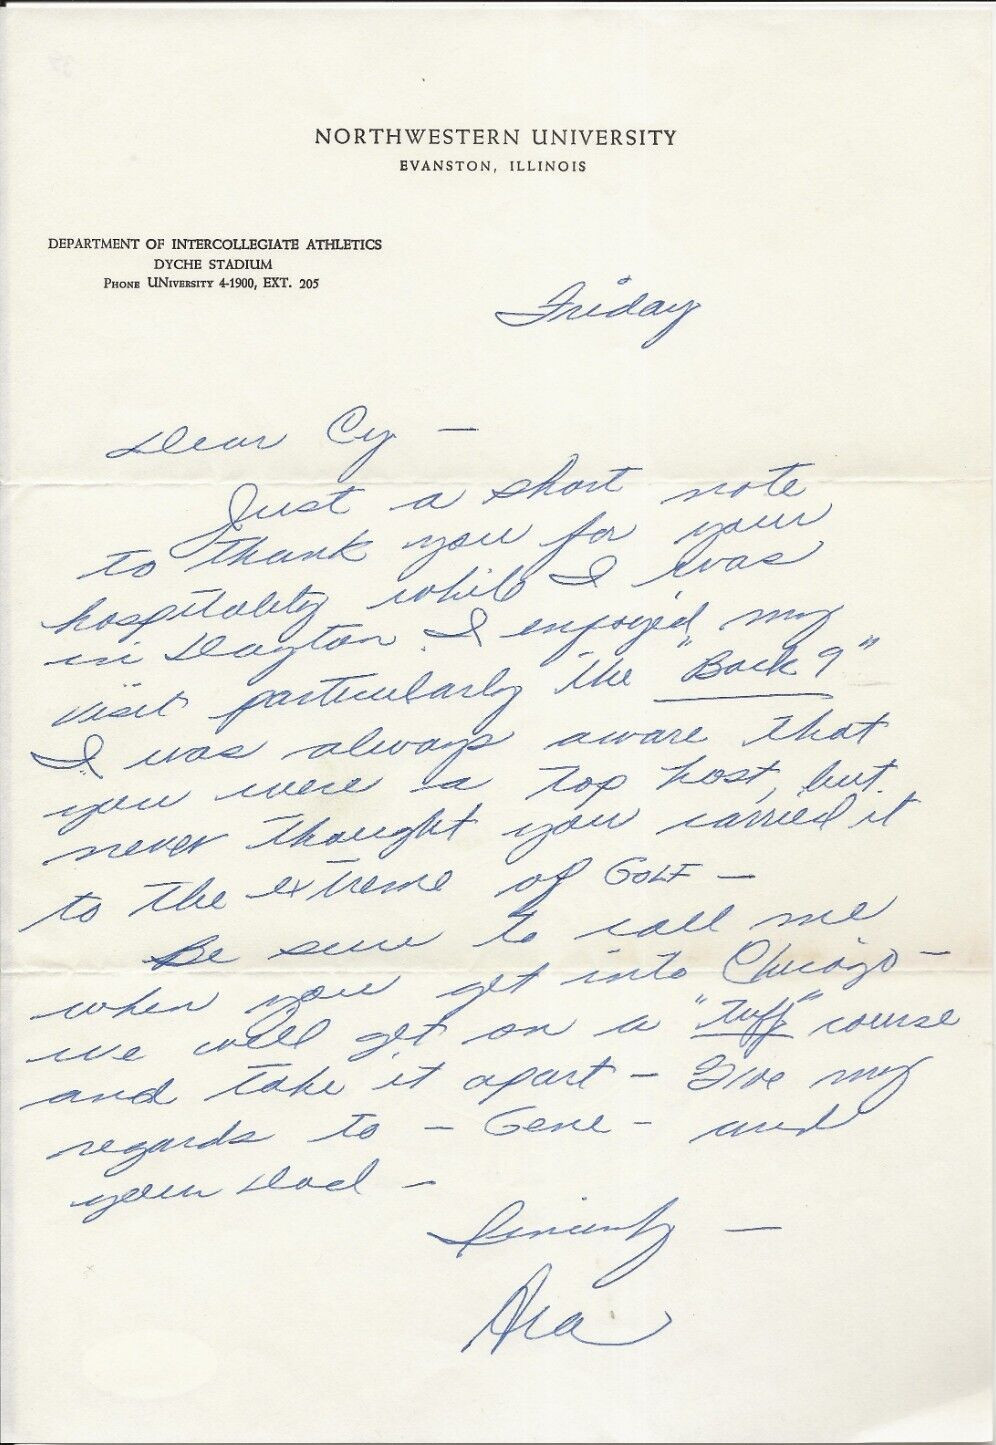 NORTHWESTERN UNIVERSITY
EVANSTON, ILLINOIS
DEPARTMENT OF INTERCOLLEGIATE ATHLETICS
DYCHE STADIUM
PHONE UNIVERSITY 4-1900, EXT. 205
Friday
Dear Cy -
Just a short note
to thank you for your
hospitality while I was
in Dayton. I enjoyed my
visit particularly the "Back 9"
I was always aware that
you were a top host, but
never thought you carried it
to the extreme of GOLF -
Be sure to call me
when you get into Chicago -
we will get on a "tuff" course
and take it apart - Give my
regards to - Gene - and
your Dad -
Sincerely -
Ara